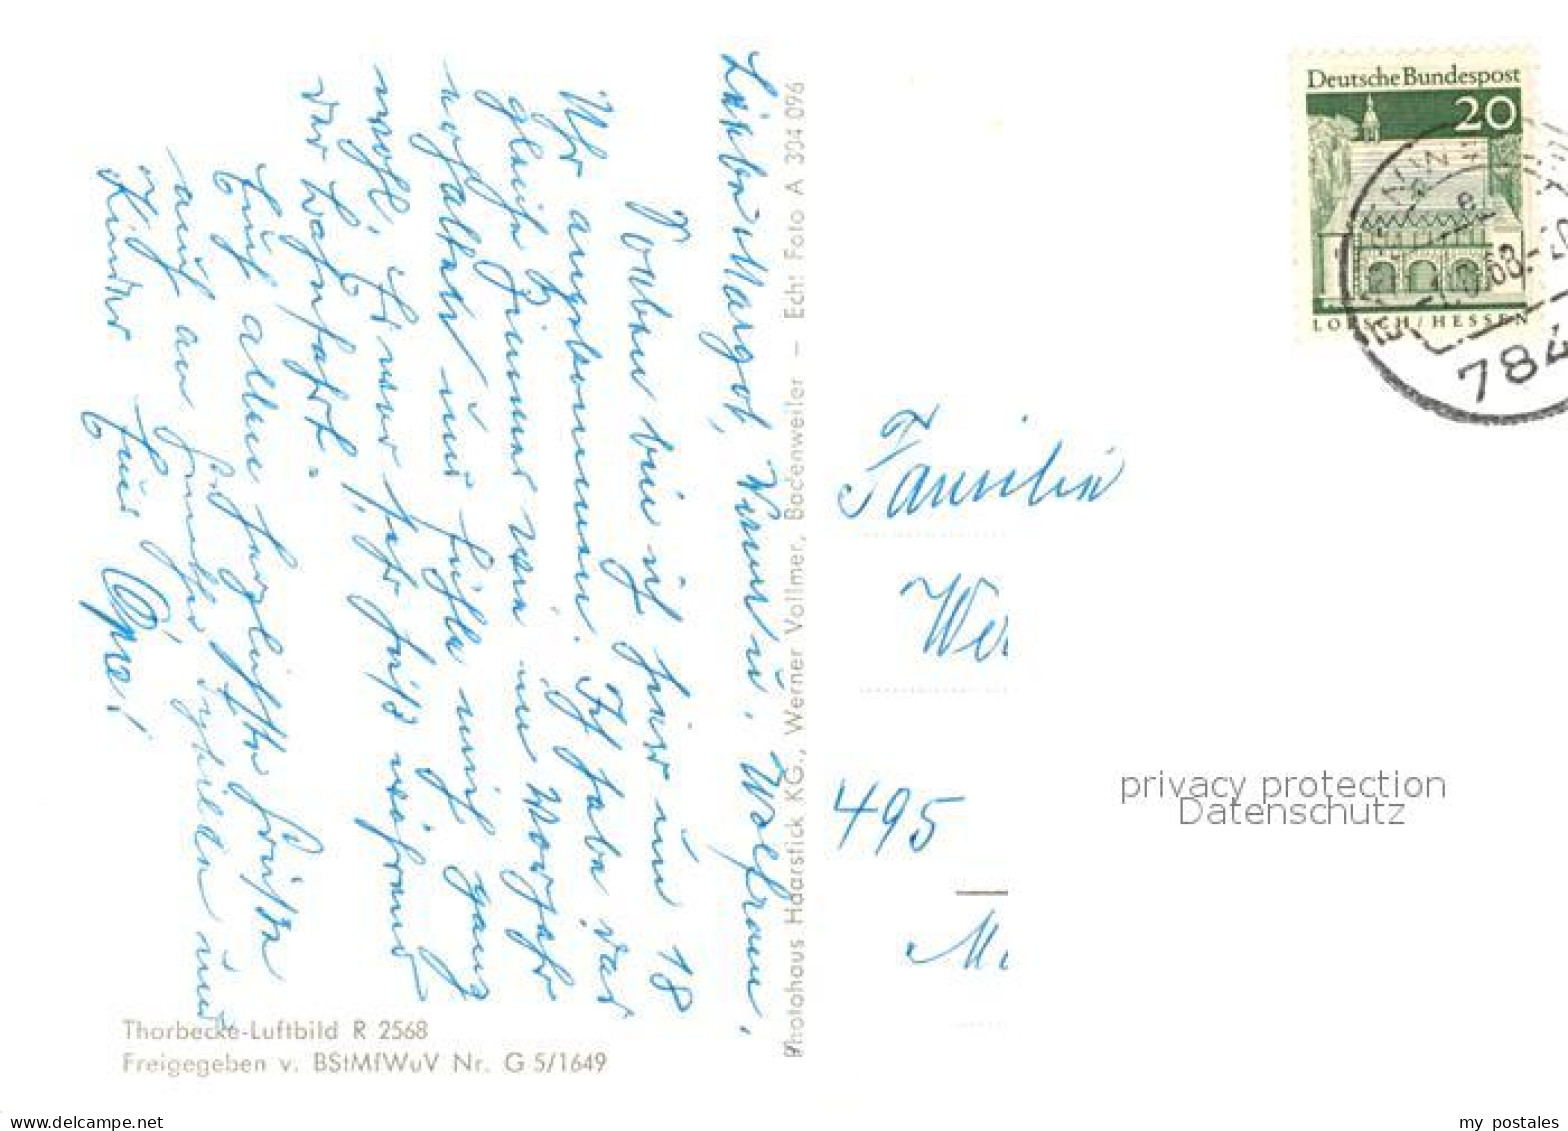 Liebe Margot, Werner u. Wolfram,
Soeben bin ich hier um 18
Uhr angekommen. Ich habe das
gleiche Zimmer wie im Vorjahr
erhalten und fühle mich ganz
wohl. Es war sehr heiß während
der Bahnfahrt.
Euch allen herzlichste Grüße
auch an
Kinder Eure Oma!
Thorbecke-Luftbild R 2568
Freigegeben v. BStMfWuV Nr. G 5/1649
Photohaus Haarstick KG., Werner Vollmer, Badenweiler – Echt Foto A 304 096
Deutsche Bundespost
20
LORSCH/HESSEN
784
Familie
We
495
M
privacy protection
Datenschutz
delcampe.net
my_postales